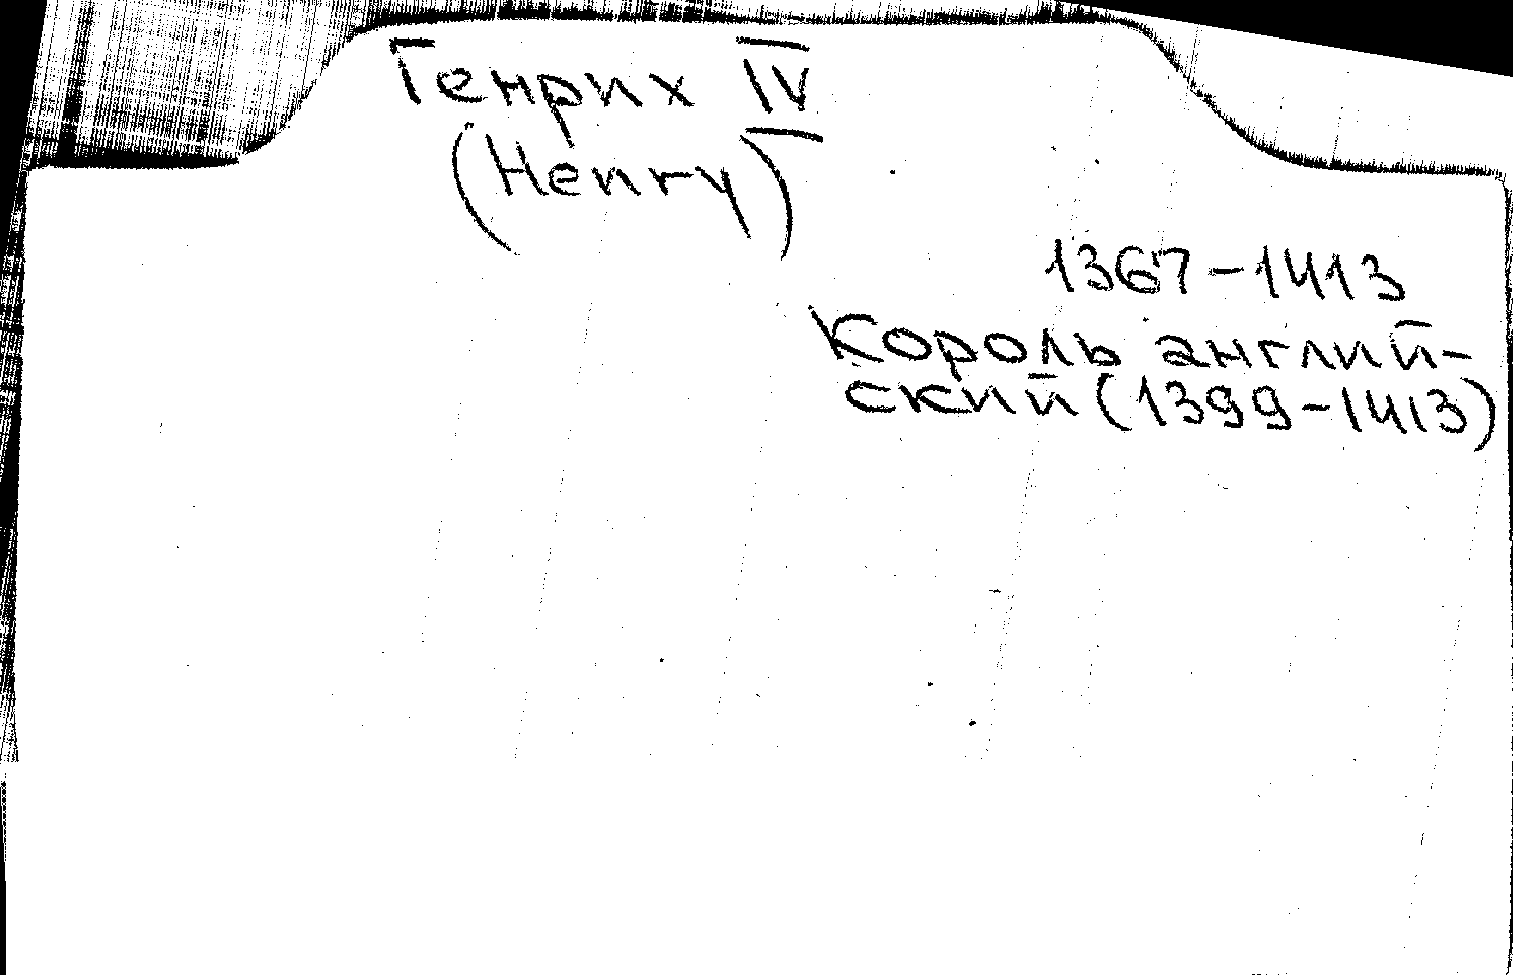 Генрих IV
(Henry)
1367-1413
Король англий-
ский (1399-1413)